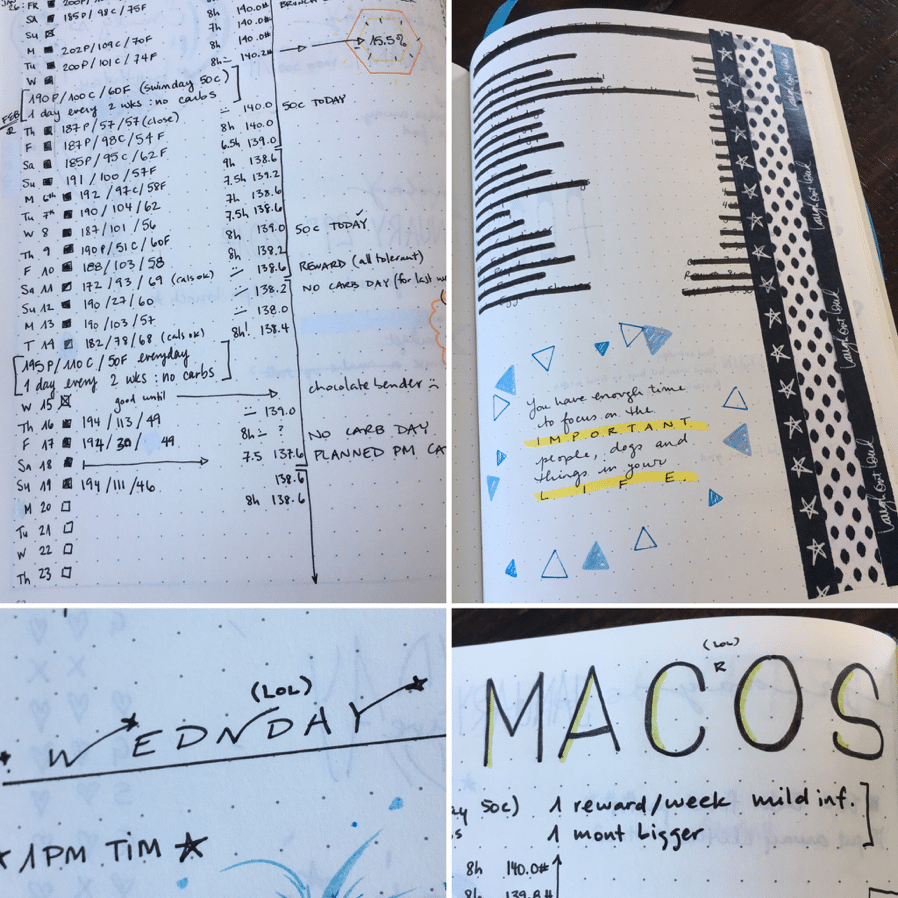 26: FR 200P/
SA 185P/98C/75F 140.0#
Su 7h 140.0#
M 202P/109C/70F 8h 140.0#
Tu 200P/101C/74F 8h 140.2# 15.5%
W
[190P/100C/60F (swimday 50c)
1 day every 2 wks: no carbs]
FEB
2
Th 187P/57/57 (close) – 140.0 50C TODAY
F 187P/98C/54F 8h 140.0
Sa 185P/95C/62F 6.5h 139.0
Su 191/100/57F 9h 138.6
M 6th 192/97C/58F 7.5h 139.2
Tu 7th 190/104/62 7h 138.6
W 8 187/101/56 7.5h 138.6
Th 9 190P/51C/60F 8h 139.0 50C TODAY
F 10 188/103/58 8h 138.2
Sa 11 172/93/69 (cals ok) 138.6 REWARD (all tolerant)
Su 12 190/27/60 – 138.2 NO CARB DAY (for last w
M 13 190/103/57 – 138.0
T 14 182/78/68 (cals ok) 8h! 138.4
[195P/110C/50F everyday
1 day every 2 wks: no carbs]
W 15 good until chocolate bender
Th 16 194/113/49 – 139.0
F 17 194/30/49 8h – ? NO CARB DAY
Sa 18 7.5 137.6 PLANNED PM CA
Su 19 194/111/46 138.6
M 20 8h 138.6
Tu 21
W 22
Th 23
You have enough time
to focus on the
IMPORTANT
people, dogs and
things in your
LIFE.
Laugh Out Loud
Laugh Out Loud
Laugh Out Loud
Laugh Out Loud
(LOL)
WEDNDAY
1PM TIM
(LOL)
R
MACOS
50C) 1 reward/week mild inf.
1 mont bigger
8h 140.0#
8h 139.8#